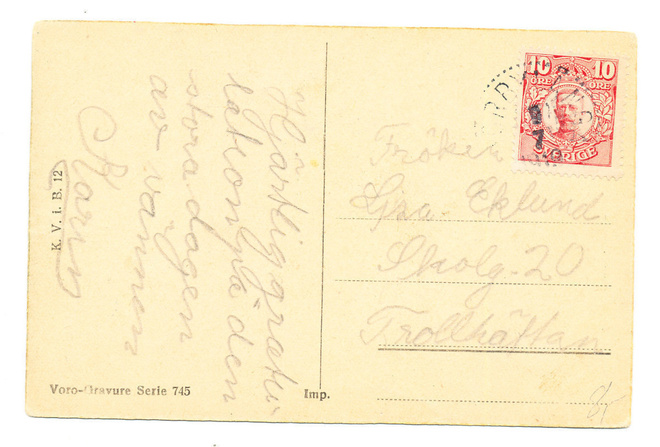 Hjärtlig gratu-
lation på den
stora dagen
av vännen
Karin
K. V. i. B. 12
Voro-Gravure Serie 745
Imp.
10 10
ÖRE ÖRE
SVERIGE
Fröken
Lisa Eklund
Skolg. 20
Trollhättan